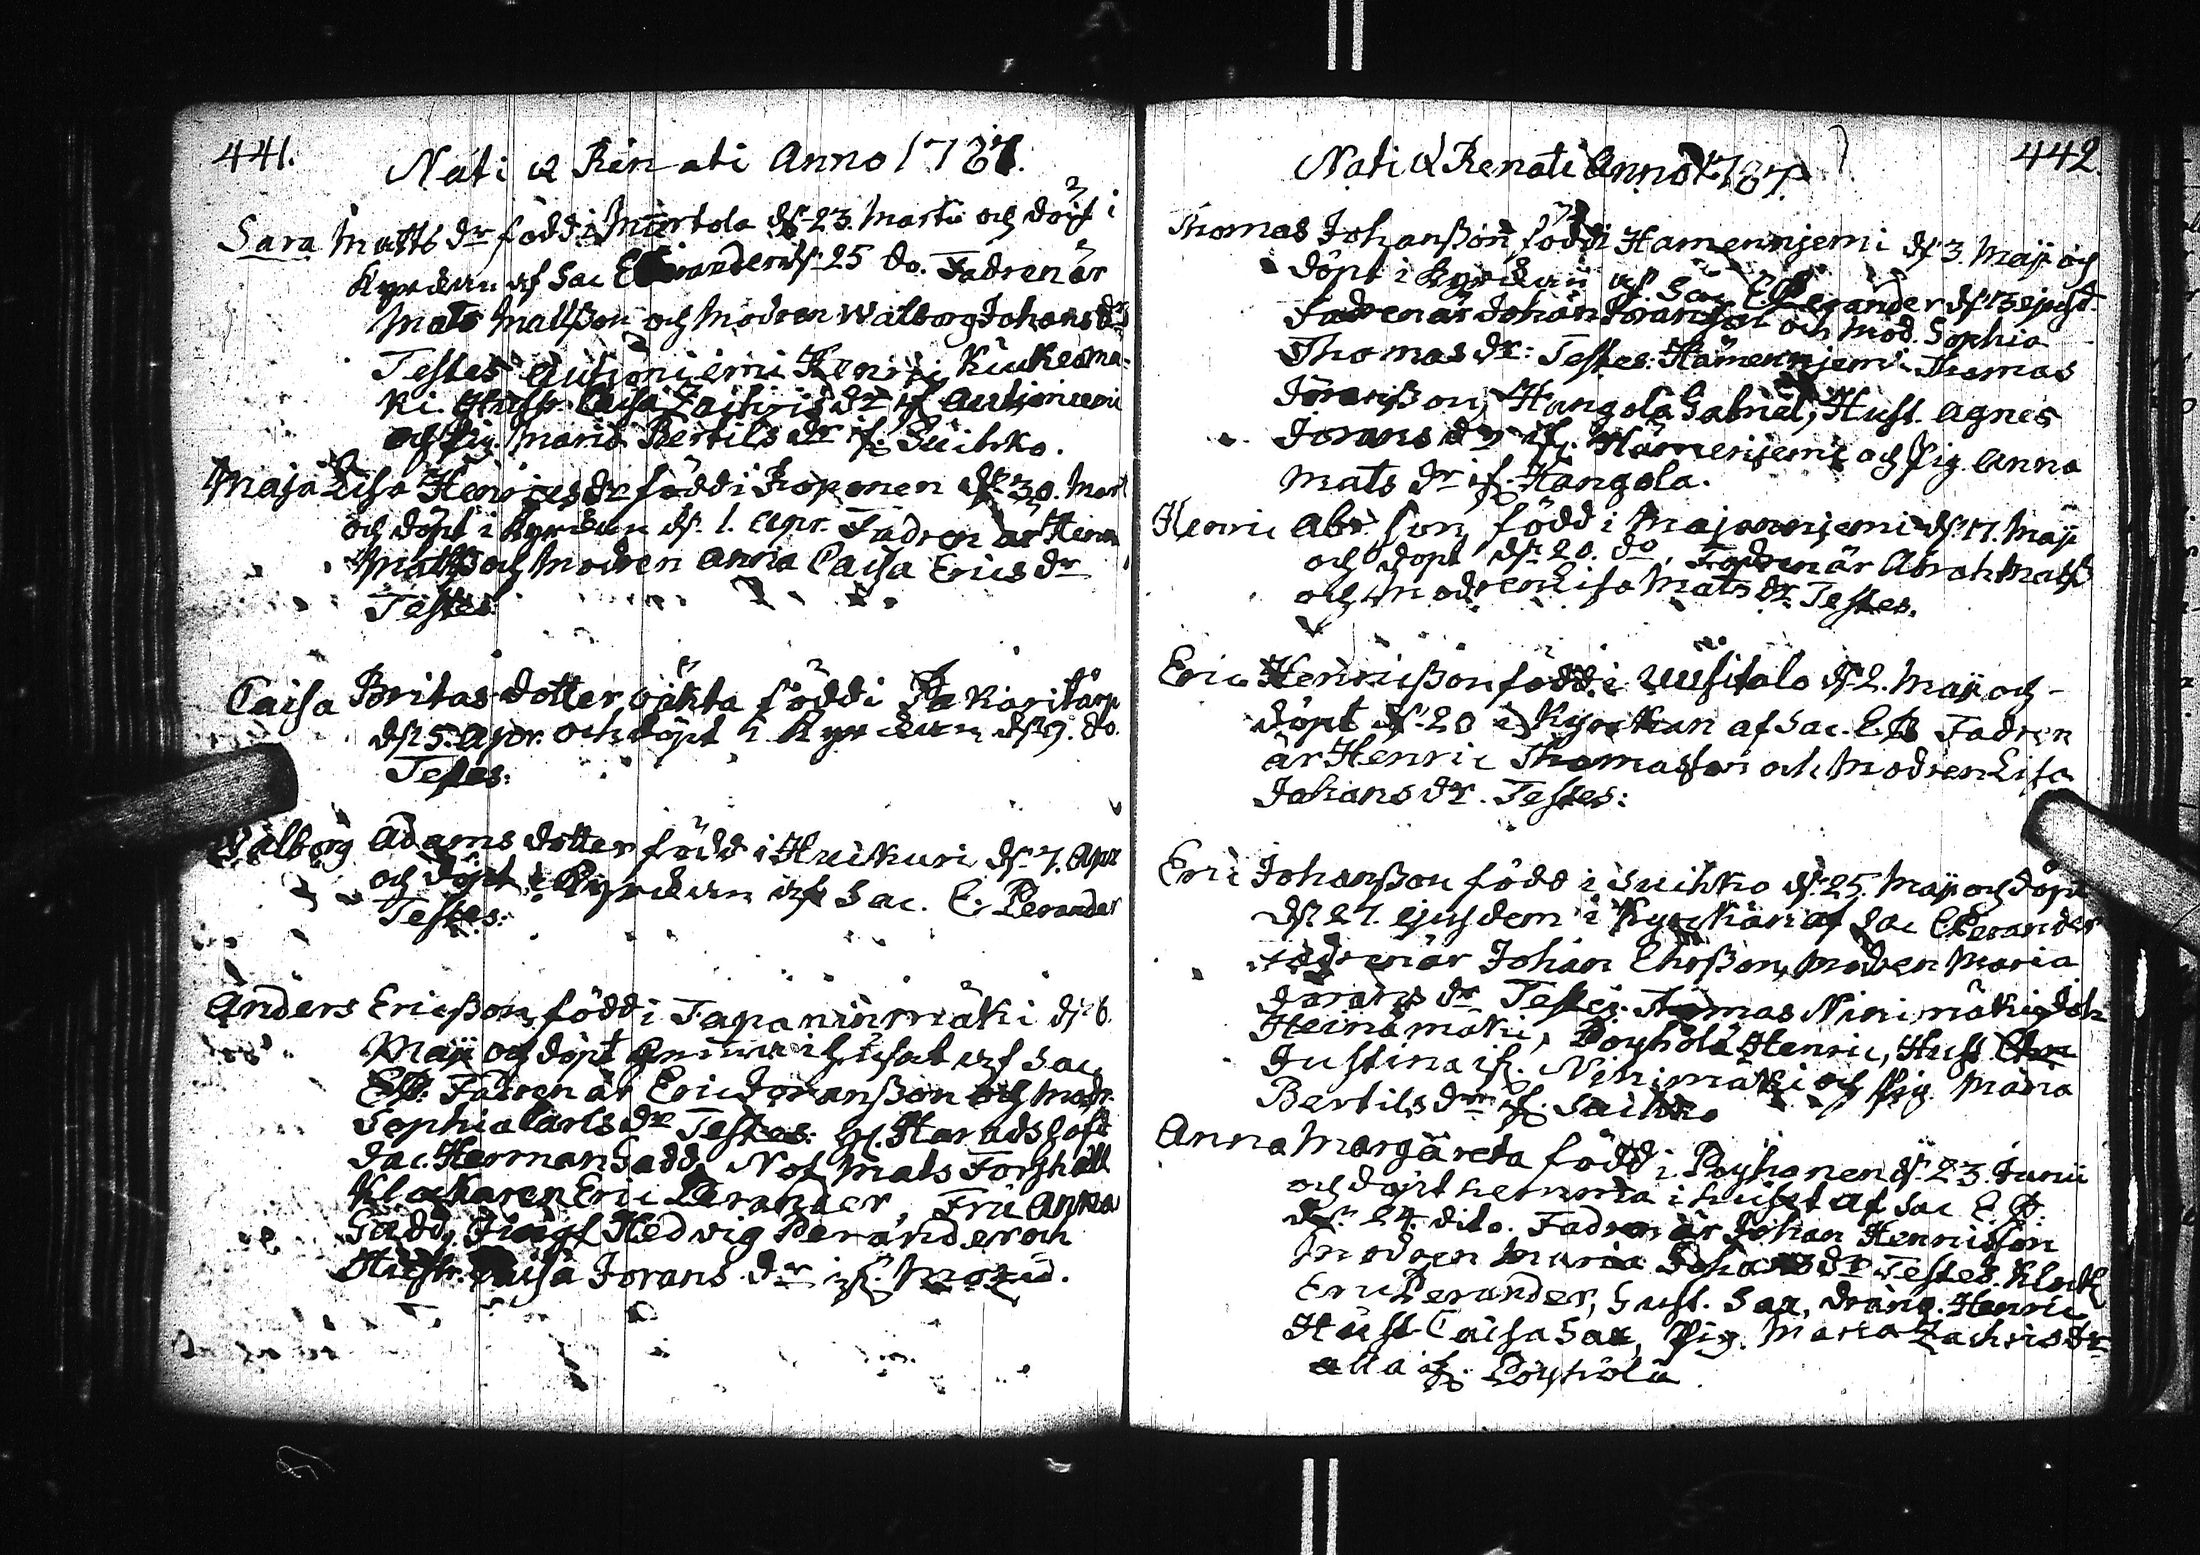 441.
Nati & Renati Anno 1787.
Sara Matts dr född i Murtola d. 23. Martii och döpt i
Kyrckan af Sac E Perander d. 25 do. Fadren är
Mats Matsßon och Modren Walborg Johans dr
Testes Autjoniemi Henric, Kiukeama-
ki. Hustr. Caisa Zachris dr if. Autjoniemi
och Pig. Maria Bertils dr if. Suihko.
Maja Lisa Henrics dr född i Roponen d. 30. Mart
och döpt i Kyrckan d. 1. Apr. Fadren är Henric
Matsß och Modren Anna Caisa Erics dr
Testes
Caisa Britas dotter oäkta född i Pakaritårp
d. 5. Apr. och döpt i Kyrckan d. 9. do.
Testes:
Walborg Adams dotter född i Huikuri d. 7. Apr
och döpt i Kyrckan af Sac. E. Perander
Testes:
Anders Ericßon, född i Tapaninmäki d. 6.
Maji och döpt hemma i huset af Sac
E.P. Fadren är Eric Joranßon och Modr.
Sophia Carls dr Testes: H. Haradshöfd
Jac. Herman Gadd, Not Mats Forshæll
Klockaren Eric Perander, Fru Anna
Gadd, Jungf Hedvig Perander och
Hustr. Caisa Jorans dr if.
442.
Nati & Renati Anno 1787.
Thomas Johanßon, född i Hamennjemi d. 3. Maji och
döpt i Kyrckan af. Sac E Perander d. 13 ejusd.
Fadren är Johan Joranßon och Mod. Sophia
Thomas dr: Testes: Hämennjemi Thomas
Joranßon, Hangola Gabriel, Hust. Agnes
Jorans dr if. Hämenjemi och Pig. Anna
Mats dr if. Hangola.
Henric Abr. son, född i Majannjemi d. 17. Maji
och döpt d. 20. do, Fadren är Abrah Matsß
och Modren Lisa Mats dr. Testes.
Eric Henricßon född i Uusitalo d. 2. Maji och
döpt d. 20 i Kyrckan af Sac. E.P. Fadren
är Henric Thomasson och Modren Lisa
Johans dr. Testes:
Eric Johanßon född i Suihko d. 25. Maji och döpt
d. 27. ejusdem i Kyrckan af Sac E Perander
Fadren är Johan Ehrßon, Modren Maria
Jorans dr Testes. Thomas Ninimäki, Joh
Heinämäki, Pöyhölä Henric, Hust.
Justina if. Ninimäki och Pig Maria
Bertils dr if. Suihko
Anna Margareta född i Poyhonen d. 23. Junii
och döpt hemma i huset af Sac E.P.
d. 24. dito. Fadren är Johan Henricsson
Modren Maria Johans dr Testes. Klock
Eric Perander, Gust. Sax, dräng. Henric
Hust. Caisa Sax, Pig. Maria Zachris dr
alla if. Poyhölä